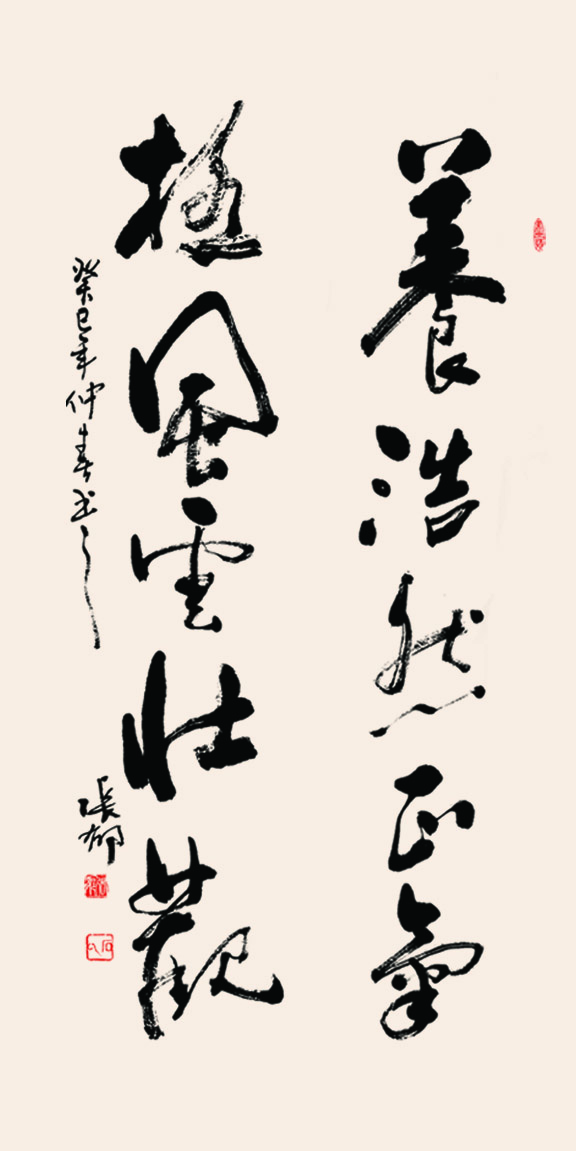 養浩然正氣
極風雲壯觀
癸巳年仲春書之
張郁